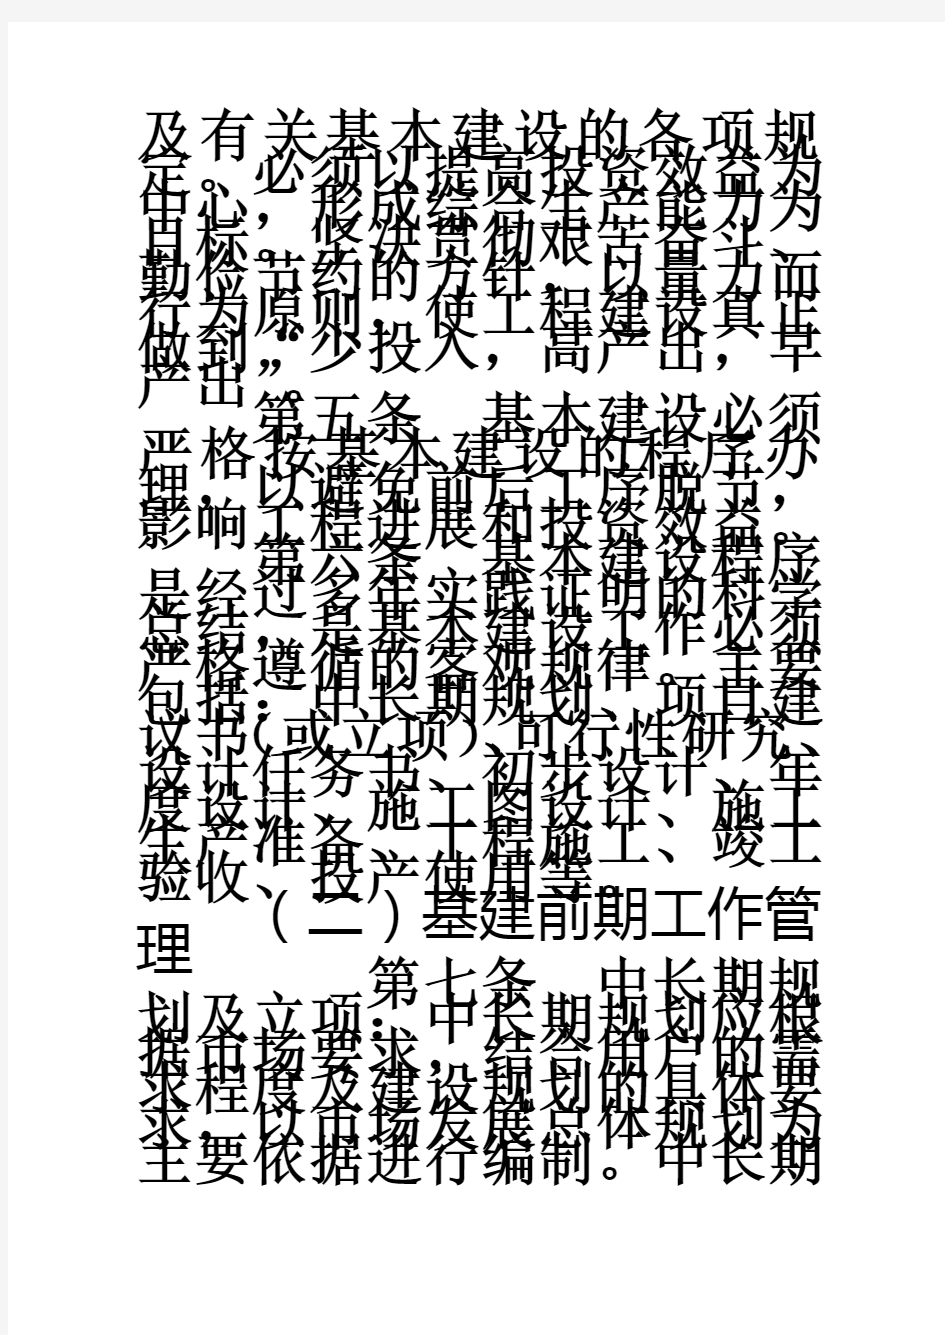 及有关基本建设的各项规
定。必须以提高投资效益为
中心，形成综合生产能力为
目标。坚决贯彻艰苦奋斗、
勤俭节约的方针，以量力而
行为原则，使工程建设真正
做到“少投入，高产出，早
产出”。
第五条 基本建设必须
严格按基本建设的程序办
理，以避免前后工序脱节，
影响工程进展和投资效益。
第六条 基本建设程序
是经过多年实践证明的科学
总结，是基本建设工作必须
严格遵循的客观规律。主要
包括：中长期规划、项目建
议书(或立项)、可行性研究、
设计任务书、初步设计、年
度设计、施工图设计、施工
生产准备、工程施工、竣工
验收、投产使用等。
（二）基建前期工作管
理
第七条 中长期规
划及立项：中长期规划应根
据市场要求，结合用户的需
求程度及建设规划的具体要
求，以市场发展总体规划为
主要依据进行编制。中长期